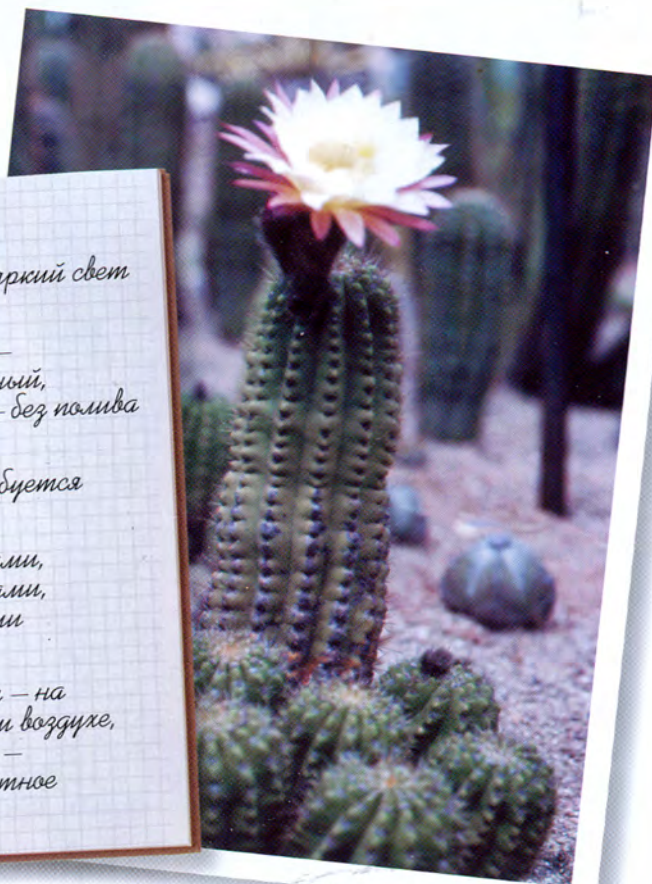 яркий свет
–
ный,
– без полива
буется
ми,
ами,
ми
– на
м воздухе,
–
тное